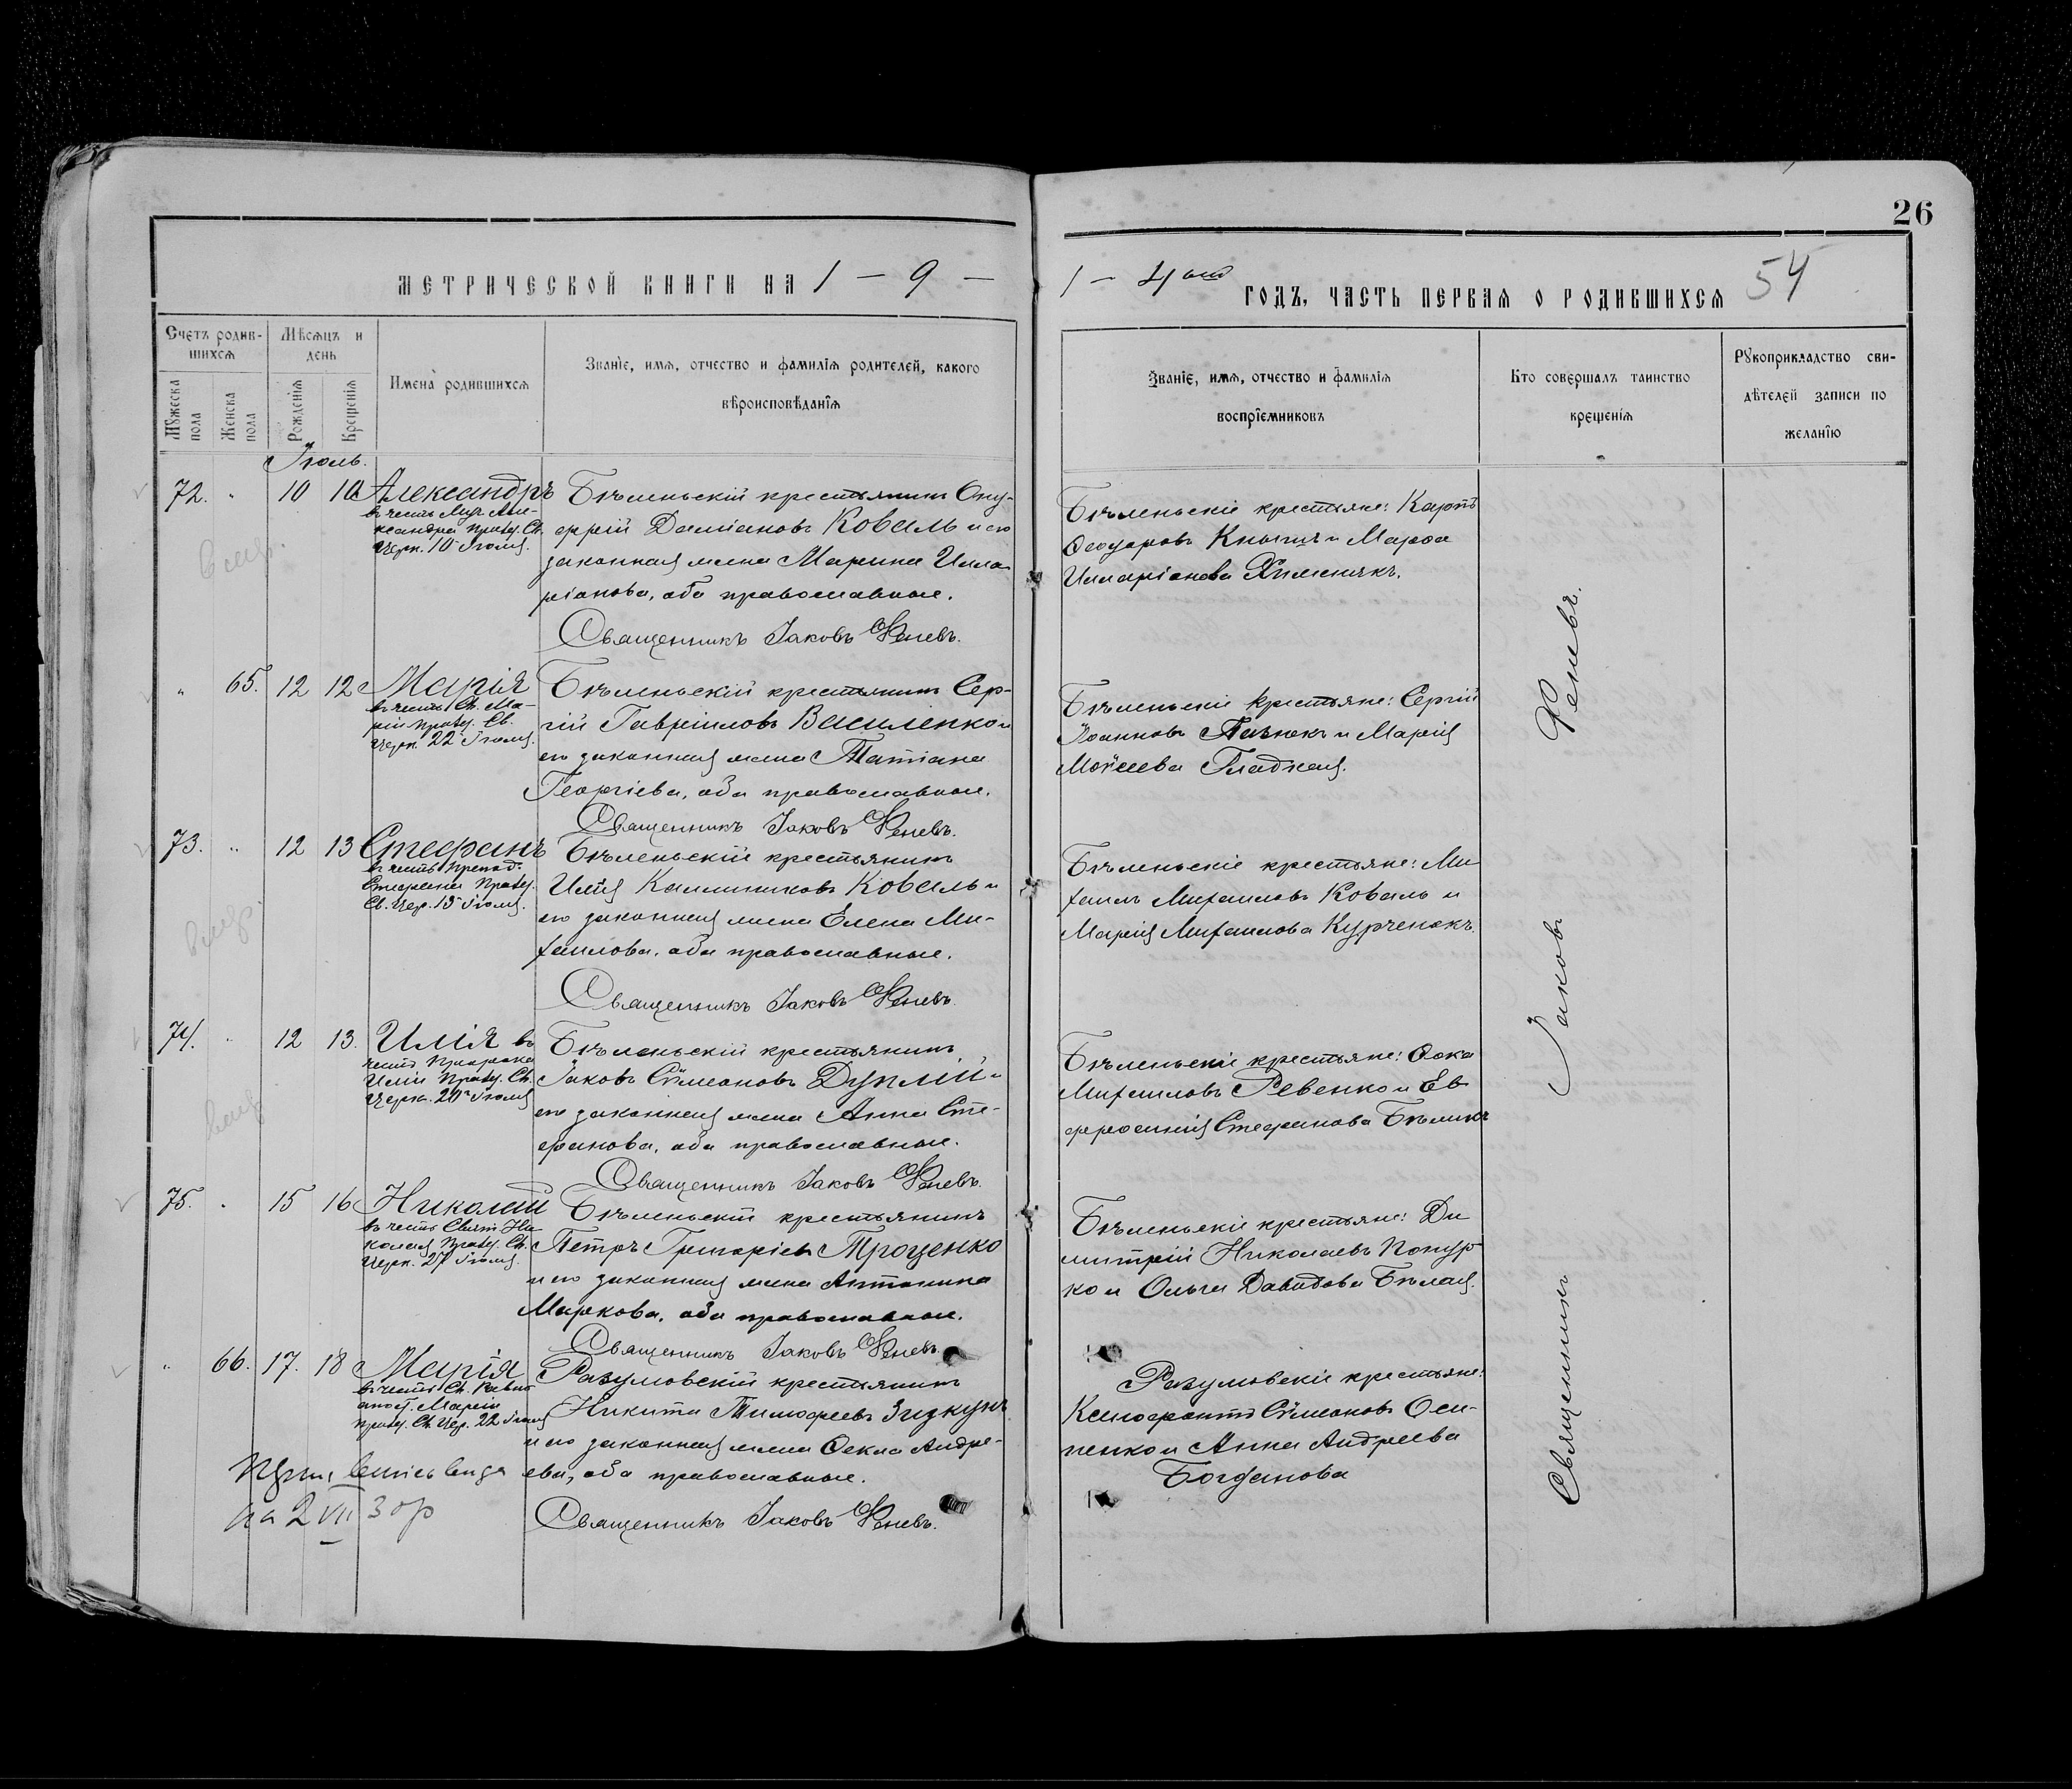 26
МЕТРИЧЕСКОЙ КНИГИ НА 1 – 9 –
1 – 4 ый ГОДЪ, ЧАСТЬ ПЕРВАЯ О РОДИВШИХСЯ 54
Счетъ родив-
шихся
Мѣсяцъ и
день
Мужеска пола
Женска пола
Рожденія
Крещенія
Имена родившихся
Званіе, имя, отчество и фамилія родителей, какого
вѣроисповѣданія
Званіе, имя, отчество и фамилія
воспріемниковъ
Кто совершалъ таинство
крещенія
Рукоприкладство сви-
дѣтелей записи по
желанію
Іюль.
72. „ 10 10 Александръ
въ честь Муч. Але-
ксандра празд. Св.
Церк. 10 Іюля.
Бѣленьскій крестьянинъ Ону-
фрій Даміановъ Коваль и его
законная жена Марина Илла-
ріонова, оба православные.
Священникъ Іаковъ Феневъ.
Бѣленьскіе крестьяне: Карпъ
Ѳеодоровъ Книшъ и Марѳа
Илларіонова Хименякъ.
„ 65. 12 12 Марія
въ честь Св. Ма-
ріи празд. Св.
Церк. 22 Іюля.
Бѣленьскій крестьянинъ Сер-
гій Гавріиловъ Василенко и
его законная жена Татіана
Георгіева, оба православные.
Священникъ Іаковъ Феневъ.
Бѣленьскіе крестьяне: Сергій
Іоанновъ Пазюкъ и Марія
Моѵсеева Гладкая.
73. „ 12 13 Стефанъ
въ честь Препод.
Стефана празд.
Св. Цер. 13 Іюля.
Бѣленьскій крестьянинъ
Илія Каллиниковъ Коваль и
его законная жена Елена Ми-
хаилова, оба православные.
Священникъ Іаковъ Феневъ.
Бѣленьскіе крестьяне: Ми-
хаилъ Михаиловъ Коваль и
Марія Михаилова Курченокъ.
74. „ 12 13. Илія въ
честь Пророка
Иліи празд. Св.
Церк. 20 Іюля
Бѣленьскій крестьянинъ
Іаковъ Сѵмеоновъ Дуплій и
его законная жена Анна Сте-
фанова, оба православные.
Священникъ Іаковъ Феневъ.
Бѣленьскіе крестьяне: Ѳока
Михаиловъ Ревенко и Ев-
фросинія Стефанова Бѣликъ
75. „ 15 16 Николай
въ честь Свят. Ни-
колая празд. Св.
Церк. 27 Іюля.
Бѣленьскій крестьянинъ
Петръ Григоріевъ Троценко
и его законная жена Антонина
Маркова, оба православные.
Священникъ Іаковъ Феневъ.
Бѣленьскіе крестьяне: Ди-
митрій Николаевъ Попур-
ко и Ольга Давидова Бѣлая.
„ 66. 17. 18 Марія
въ честь Св. Равно-
апост. Маріи
празд. Св. Цер. 22 Іюля
Разумовскій крестьянинъ
Никита Тимофеевъ Зизкунъ
и его законная жена Ѳекла Андре-
ева, оба православные.
Священникъ Іаковъ Феневъ.
Разумовскіе крестьяне:
Ксенофонтъ Сѵмеоновъ Оси-
пенко и Анна Андреева
Богданова
на 2 VII 30 р
Священникъ Іаковъ Феневъ.